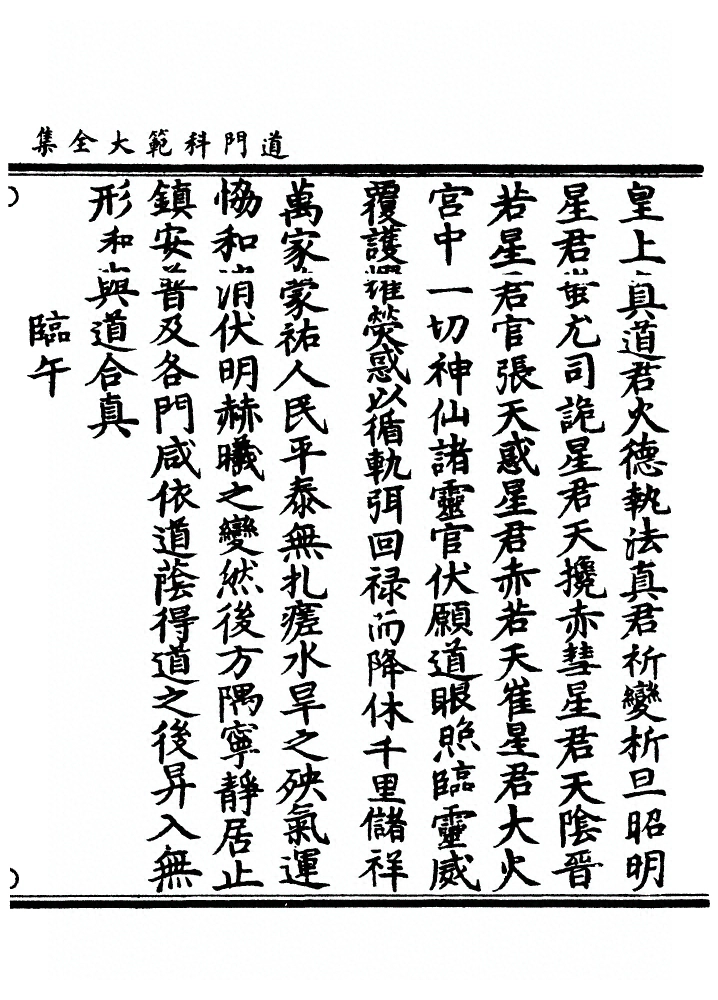 道門科範大全集
皇上真道君火德執法真君祈變析旦昭明
星君蚩尤司詭星君天攙赤彗星君天陰晋
若星君官張天惑星君赤若天崔星君大火
宮中一切神仙諸靈官伏願道眼照臨靈威
覆護熒惑以循軌弭回禄而降休千里儲祥
萬家蒙祐人民平泰無扎瘥水旱之殃氣運
恊和消伏明赫曦之變然後方隅寧靜居止
鎮安普及各門咸依道蔭得道之後昇入無
形和與道合真
臨午